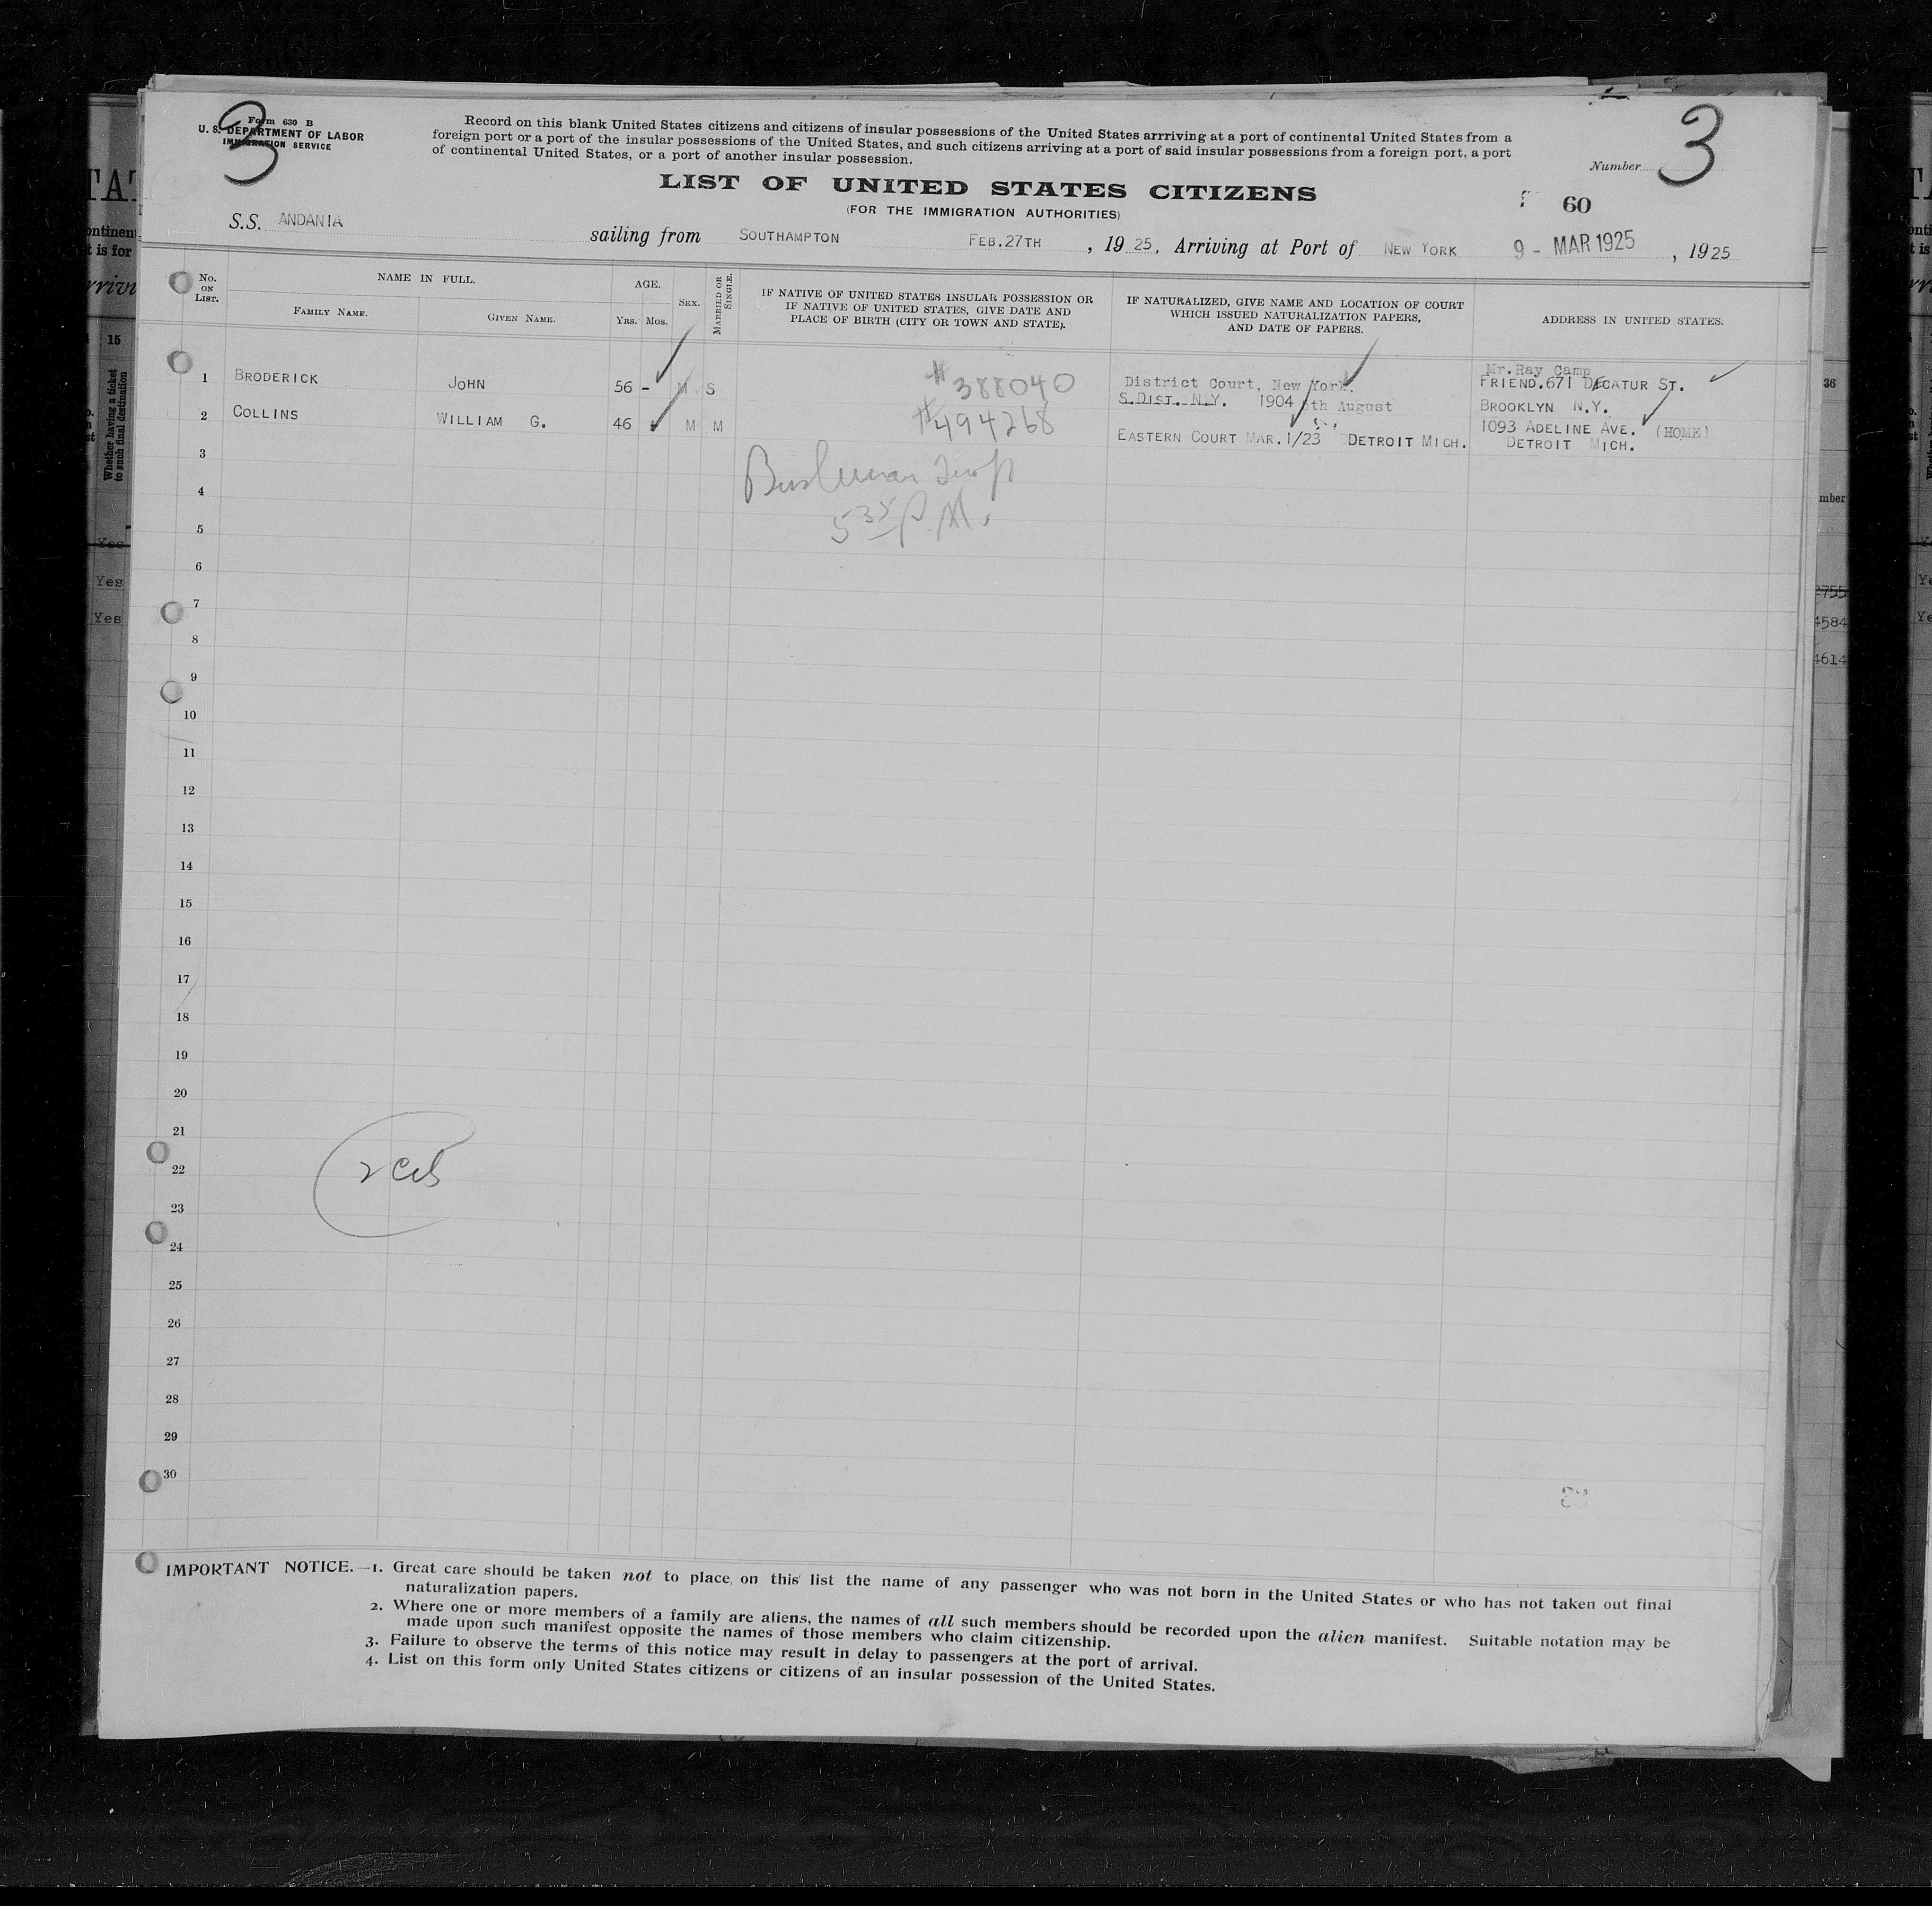 3
Form 630 B
U. S. DEPARTMENT OF LABOR
IMMIGRATION SERVICE
Record on this blank United States citizens and citizens of insular possessions of the United States arrriving at a port of continental United States from a
foreign port or a port of the insular possessions of the United States, and such citizens arriving at a port of said insular possessions from a foreign port, a port
of continental United States, or a port of another insular possession.
Number 3
LIST OF UNITED STATES CITIZENS
(FOR THE IMMIGRATION AUTHORITIES)
60
S.S. ANDANIA sailing from SOUTHAMPTON FEB.27TH , 19 25, Arriving at Port of NEW YORK 9 - MAR 1925 , 1925
No. ON LIST.
NAME IN FULL.
FAMILY NAME.
GIVEN NAME.
AGE.
YRS. MOS.
SEX.
MARRIED OR SINGLE.
IF NATIVE OF UNITED STATES INSULAR POSSESSION OR
IF NATIVE OF UNITED STATES, GIVE DATE AND
PLACE OF BIRTH (CITY OR TOWN AND STATE).
IF NATURALIZED, GIVE NAME AND LOCATION OF COURT
WHICH ISSUED NATURALIZATION PAPERS,
AND DATE OF PAPERS.
ADDRESS IN UNITED STATES.
1 BRODERICK JOHN 56 - M S #388040 District Court, New York. Mr.Ray Camp
S.DIST. N.Y. 1904 8th August FRIEND.671 DECATUR ST.
BROOKLYN N.Y.
2 COLLINS WILLIAM G. 46 M M #494268 EASTERN COURT MAR.1/23 DETROIT MICH. 1093 ADELINE AVE. (HOME)
DETROIT MICH.
3
4
5 5 35 P.M.
6
7
8
9
10
11
12
13
14
15
16
17
18
19
20
21
22
23
24
25
26
27
28
29
30
IMPORTANT NOTICE.—1. Great care should be taken not to place on this list the name of any passenger who was not born in the United States or who has not taken out final
naturalization papers.
2. Where one or more members of a family are aliens, the names of all such members should be recorded upon the alien manifest. Suitable notation may be
made upon such manifest opposite the names of those members who claim citizenship.
3. Failure to observe the terms of this notice may result in delay to passengers at the port of arrival.
4. List on this form only United States citizens or citizens of an insular possession of the United States.